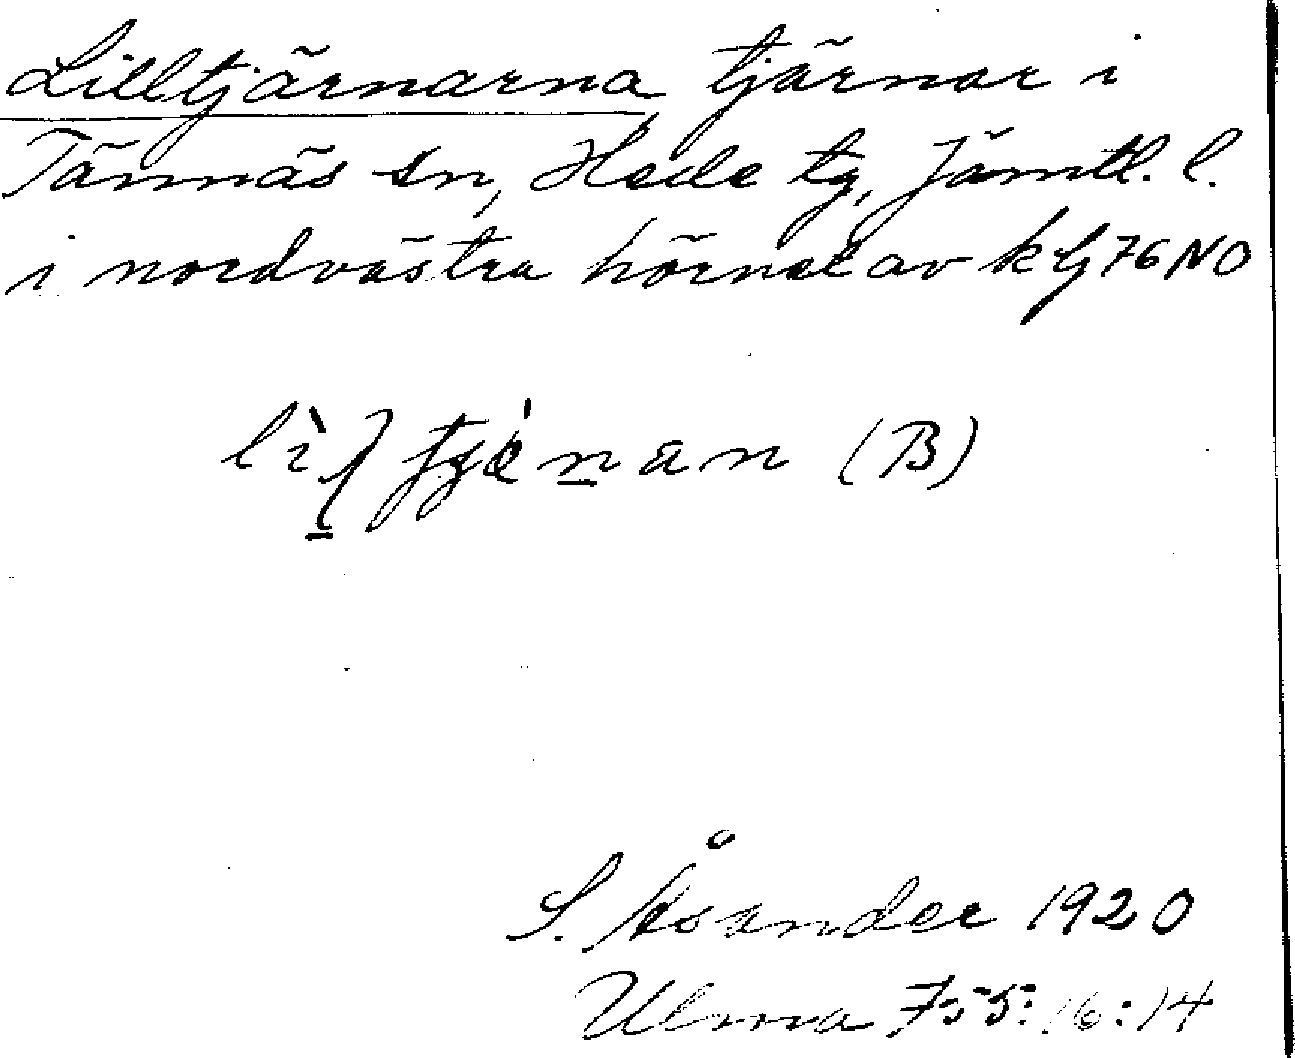 Lilltjärnarna tjärnar i
Tännäs sn, Hede tg, Jämtl. l.
i nordvästra hörnet av kbl 76 NO
(B)
S. Åsander 1920
Ulma 755:16:14